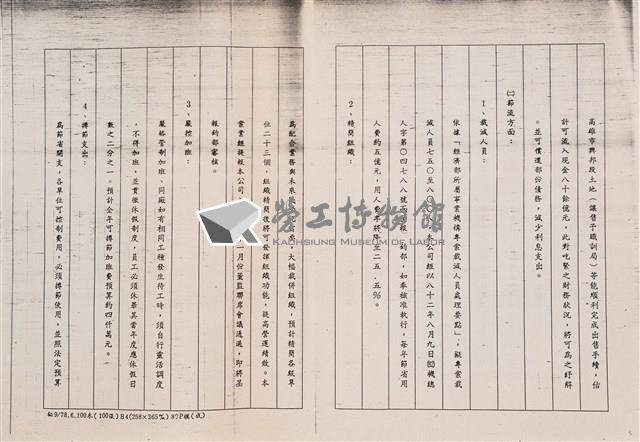 高雄市興邦段土地(讓售予職訓局)等能順利完成出售手續,估
計可流入現金八十餘億元,此對吃緊之財務狀況,將可為之紓解
。並可償還部份債務,減少利息支出。
㈡節流方面:
1、裁減人員:
依據「經濟部所屬事業機構專案裁減人員處理要點」,擬專案裁
減人員七五〇至八〇〇人,本公司經以八十二年八月九日㈧機總
人字第〇四七八八號 報 鈞部,如奉核准執行,每年節省用
人費約五億元,用人費率將降至二五.五%。
2、精簡組織:
為配合業務與未來 ,大幅裁併組織,預計精簡各級單
位二十三個,組織精簡後將可發揮組織功能,提高營運績效。本
案業經提報本公司 一月份董監聯席會議通過,即將呈
報鈞部審核。
3、嚴控加班:
嚴格管制加班、同廠如有相同工種發生待工時,須自行靈活調度
,不得加班,並貫徹休假制度,員工必須休畢其當年度應休假日
數之二分之一。預計全年可撙節加班費預算約四仟萬元。
4、撙節支出:
為節省開支,各單位可控制費用,必須撙節使用,並照法定預算
紙9/78.6.100本(100張)B4(258×365‰)80P模(威)
勞工博物館
KAOHSIUNG MUSEUM OF LABOR